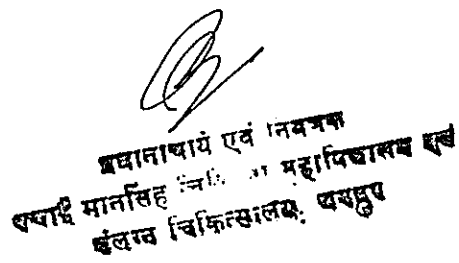 प्रधानाचार्य एवं नियंत्रक
सवाई मानसिंह महाविद्यालय एवं
संलग्न चिकित्सालय, जयपुर